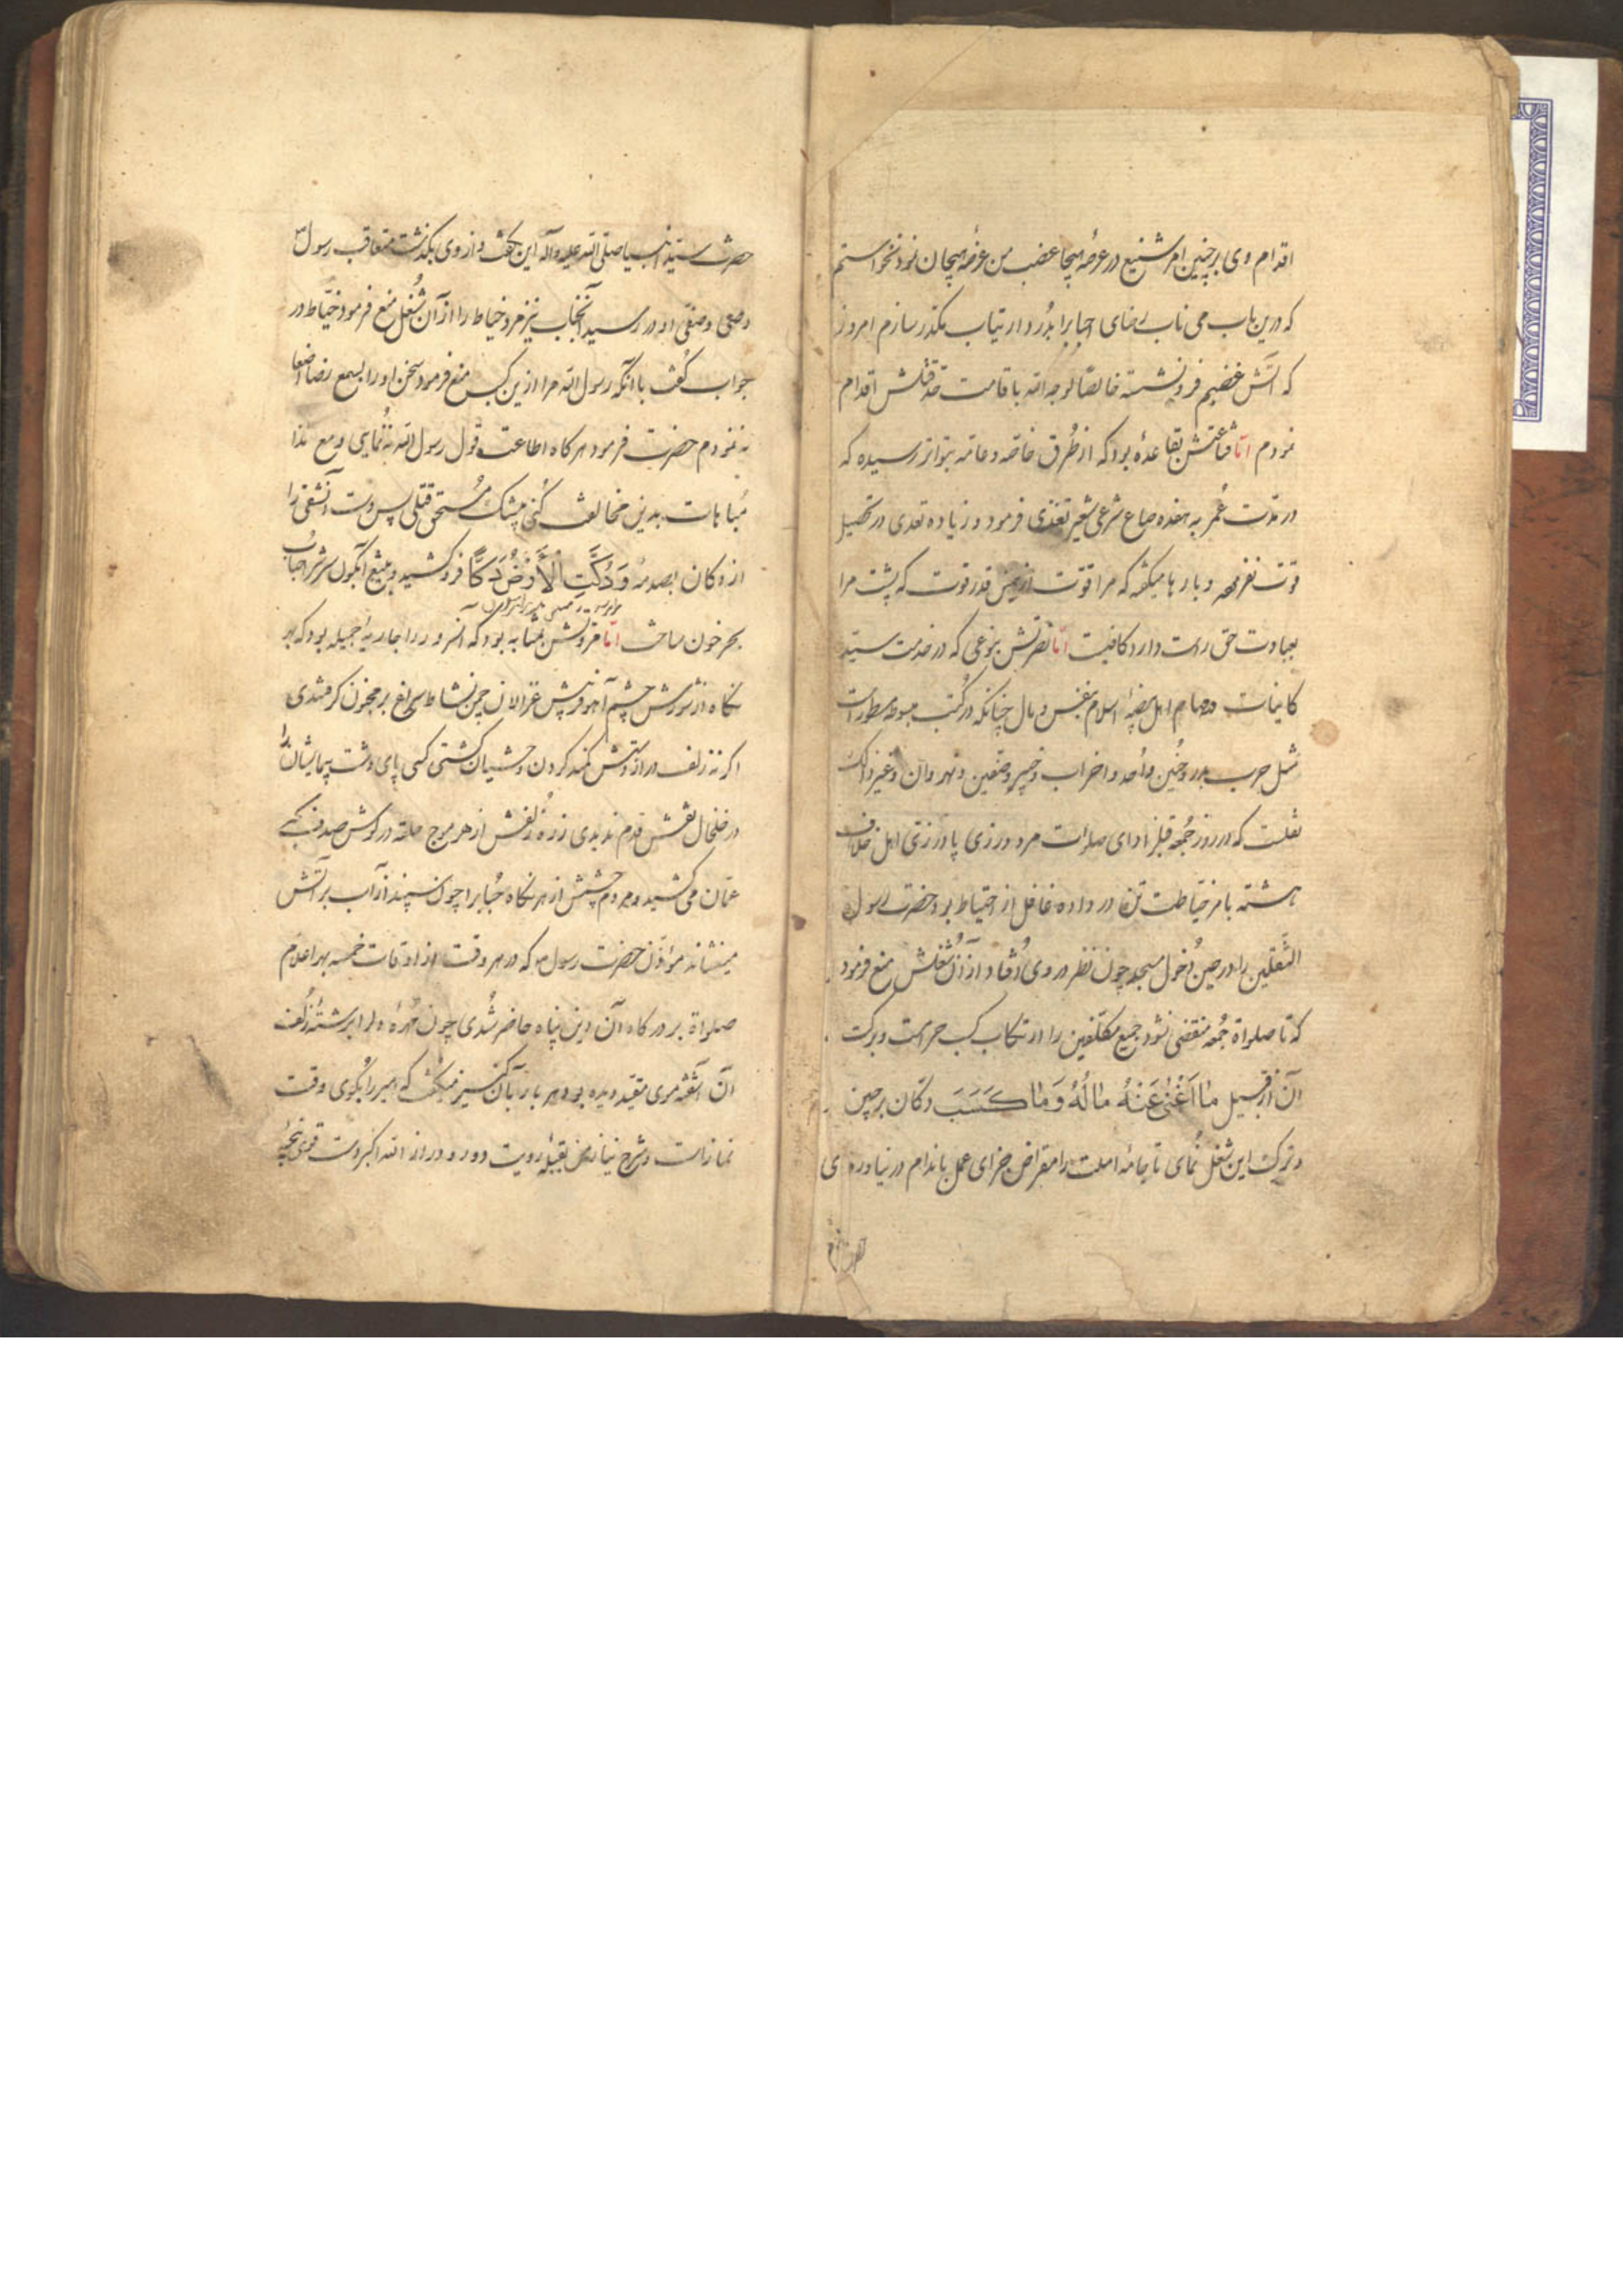 اقدام وی بر چنین امر شنیع در عرصهٔ هیجا غضب من عرضهٔ هیجان نمود نخواستم
که درین باب می ناب رضای احبا را بدُرد ارتیاب مکدر سازم امروز
که آتش غضبم فرو نشسته خالصًا لوجه الله باقامت قتلش اقدام
نمودم امّا قناعتش بقاعدهٔ بود که از طُرق خاصه و عامه بتواتر رسیده که
در مدّت عُمر به هفده صاع شرعی شعیر تغذی فرمود و زیاده تعدی در تحصیل
قوت نفرموده و بارها میگفته که مرا قوّت ازین قدر قوت که پشت مرا
بعبادت حق راست دارد کافیت امّا نصرتش بنوعی که در خدمت سیّد
کاینات و مهام اهل بیضهٔ اسلام بنفس و مال چنانکه در کُتب مبسوطه مسطور است
مثل حرب بدر و حُنین و اُحد و احزاب و خیبر و صفین و نهروان و غیر ذالک
نقلست که در روز جُمعه قبل از ادای صلوات مرد درزی پا در زتی اهل خلاف
هشته بامر خیاطت تن در داده غافل از احتیاط بود حضرت رسول
الثَّقلین را در حین دُخول مسجد چون نظر در وی اُفتاد از آن شُغلش منع فرمود
که تا صلواة جُمعه منقضی نشود جمیع مکلّفین را ارتکاب کسب حرامست و برکت
آن از قبیل مَا اَغْنىٰ عَنْهُ مَالُهُ وَمَا كَسَبَ دکان برچین
و ترک این شغل نُمای تا جامهٔ املت را مقراض جزای عمل باندام در نیاورده‌ی
حضرت
حضرت سیّد انبیا صلّی الله علیه و آله این بگفت و از وی بگذشت متعاقب رسول
وصی وصفی او در رسید آنجناب نیز مرد خیاط را از آن شُغل منع فرمود خیّاط در
جواب گفت با آنکه رسول الله مرا ازین کسب منع فرمود سخن او را بسمع رضا اصغا
نه نمودم حضرت فرمود هرگاه اطاعت قول رسول الله نه نُمایی و مع هذا
مُباهات بدین مخالفت کُنی بیشک مُستحق قتلی پس دست آن شقی را
از دکان بصدمهٔ وَدُكَّتِ الْأَرْضُ دَكًّا فرو کشید و بتیغ آبگون سرش را حبابُ
بحر خون ساخت امّا مروتش بمثابه بود که آنسرور را جاریهٔ جمیله بود که هر
نگاه از شورش چشم آهو فریبش غزالان چمن نشاط سراغ بر مجنون گرفتندی
اگر نه زلف دراز دستش کمند گردن وحشیان گشتی کسی پای دشت پیمایشان را
در خلخال نقش قدم ندیدی زره زلفش از هر موج حلقه در گوش صدف
عمّان می‌کشید و مردم چشمش از هر نگاه حُباب را چون سپند از آب بر آتش
مینشاند مؤذّن حضرت رسول ص که در هر وقت از اوقات خمسه بهر اعلام
صلواة بر درگاه آن دین پناه حاضر شُدی چون مُهرهٔ دل را برشتهٔ زُلف
آن آشفته موی مقیّد دیده بود هر بار بآن کنیز میگفت که امیر را بگوی وقت
نماز است و شرح نیاز من بقبلهٔ رویت دور و دراز الله اکبر دست قوی پنجهٔ